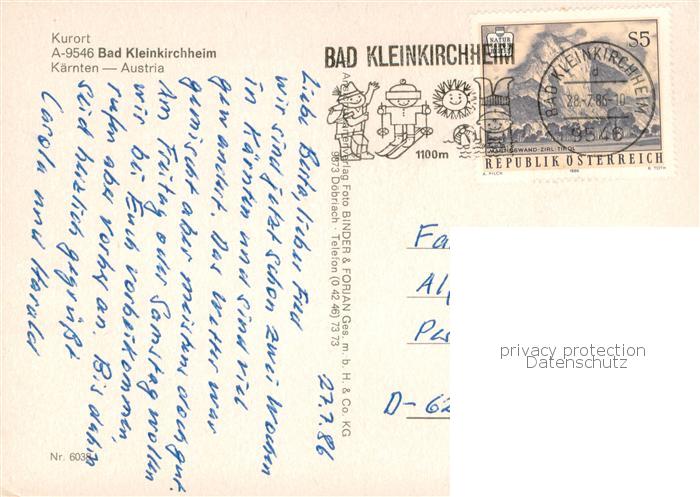 Kurort
A-9546 Bad Kleinkirchheim
Kärnten — Austria
BAD KLEINKIRCHHEIM
1100m
NATUR
S5
BAD KLEINKIRCHHEIM
d
28.-7.86-10
9546
MARTINSWAND-ZIRL-TIROL
REPUBLIK ÖSTERREICH
A. PILCH
1986
K. TOTH
27.7.86
wir sind jetzt schon zwei Wochen
in Kärnten und sind viel
gewandert. Das Wetter war
gemischt aber meistens doch gut.
Am Freitag oder Samstag wollen
wir bei Euch vorbeikommen,
rufen aber vorher an. Bis dahin
seid herzlich gegrüßt
Carola und Harald
Nr. 6038
Verlag Foto BINDER & FORJAN Ges. m. b. H. & Co. KG
9873 Döbriach · Telefon (0 42 46) 73 73
Fa
Al
D-62
privacy protection
Datenschutz